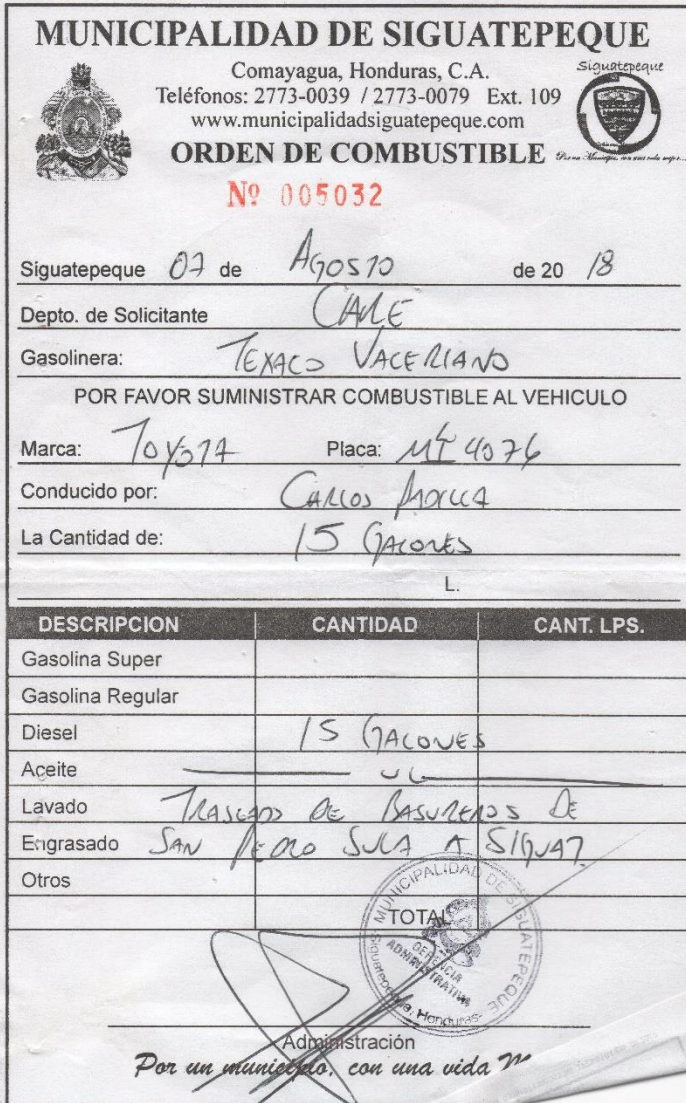 MUNICIPALIDAD DE SIGUATEPEQUE
Comayagua, Honduras, C.A.
Siguatepeque
Teléfonos: 2773-0039 / 2773-0079 Ext. 109
www.municipalidadsiguatepeque.com
ORDEN DE COMBUSTIBLE
Nº 005032
Siguatepeque 07 de Agosto de 20 18
Depto. de Solicitante
Gasolinera: TEXACO VALERIANO
POR FAVOR SUMINISTRAR COMBUSTIBLE AL VEHICULO
Marca: TOYOTA Placa: 4076
Conducido por: CARLOS PADILLA
La Cantidad de: 15 GALONES
L.
DESCRIPCION CANTIDAD CANT. LPS.
Gasolina Super
Gasolina Regular
Diesel 15 GALONES
Aceite UL
Lavado TRASLADO DE BASUREROS DE
Engrasado SAN PEDRO SULA A SIGUAT
Otros
TOTAL
MUNICIPALIDAD DE SIGUATEPEQUE
GERENCIA
ADMINISTRATIVA
Siguatepeque, Honduras
Administración
Por un municipio, con una vida M